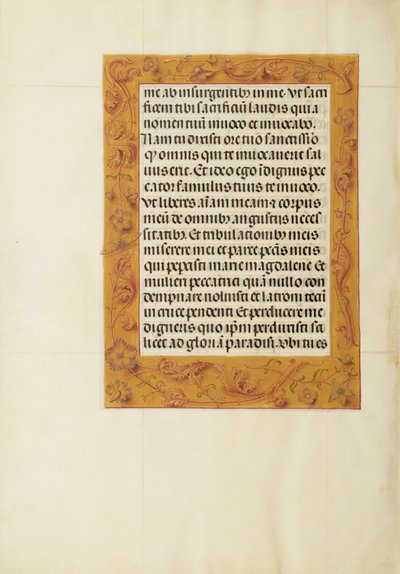 me ab insurgentibꝫ in me. Vt sacri
ficem tibi sacrificiū laudis qui a
nomen tuū inuoco et inuocabo.
Nam tu dixisti ore tuo sanctissīo
ꝙ omnis qui te inuocauerit sal
uus erit. Et ideo ego īdignus pec
cator famulus tuus te inuoco.
Vt liberes aīam meam ⁊ corpus
meū de omnibꝫ angustijs neces
sitatibꝫ. Et tribulationibꝫ meis
miserere mei et parce pcc̄is meis
qui pepcisti marie magdalene Et
mulieri peccatrici quā nullo con
dempnare noluisti et latroni tecū
in cruce pendenti Et perducere me
digneris quo ip̄m perduxisti sci
licet ad gloriā paradisi. vbi tu es